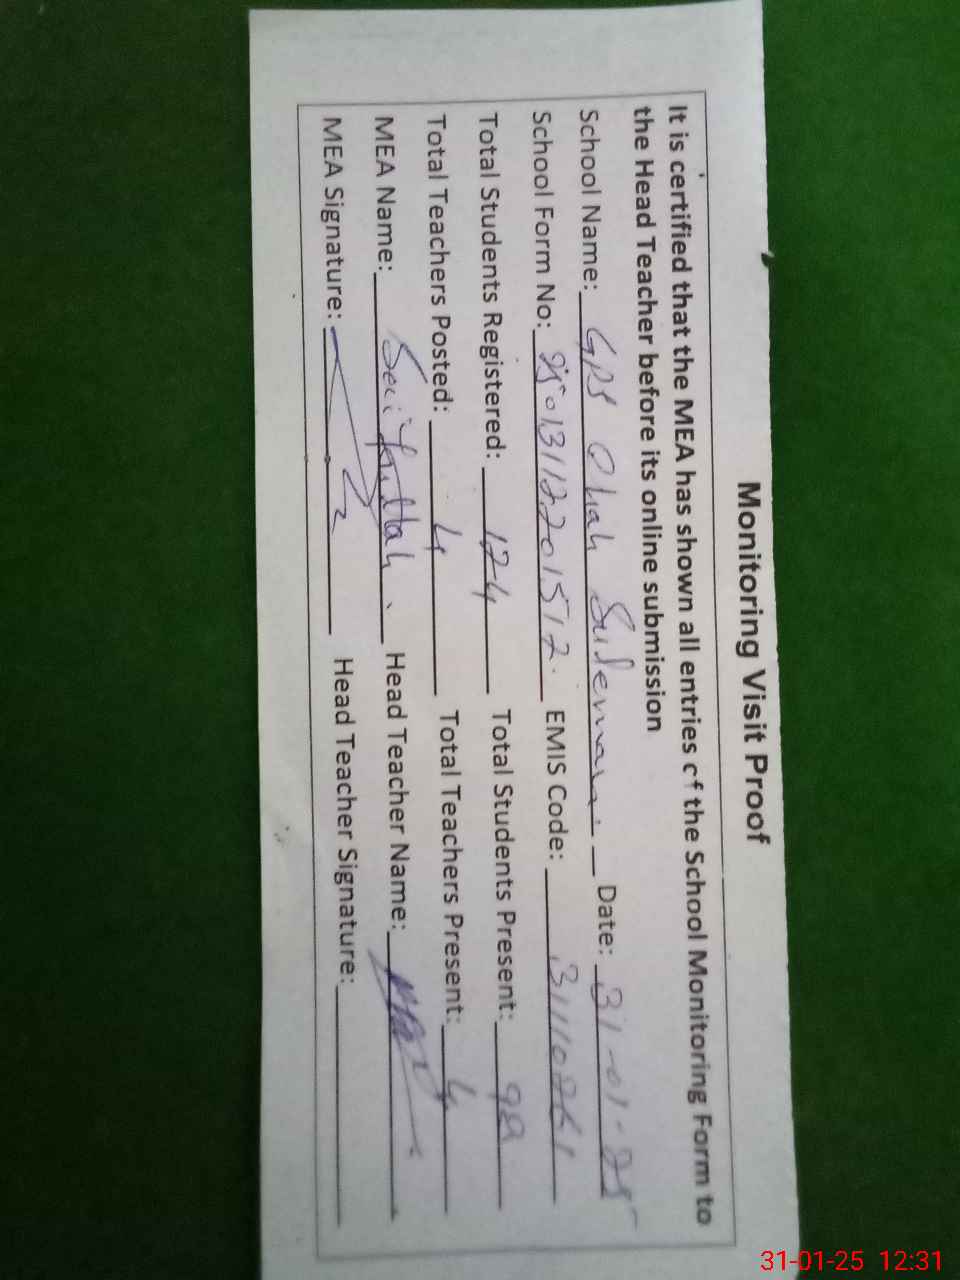 Monitoring Visit Proof
It is certified that the MEA has shown all entries of the School Monitoring Form to
the Head Teacher before its online submission
School Name: GPS Chah Suleman. Date: 31-01-25
School Form No: EMIS Code:
Total Students Registered: 124 Total Students Present: 98
Total Teachers Posted: 4 Total Teachers Present: 4
MEA Name: Head Teacher Name:
MEA Signature: Head Teacher Signature:
31-01-25 12:31